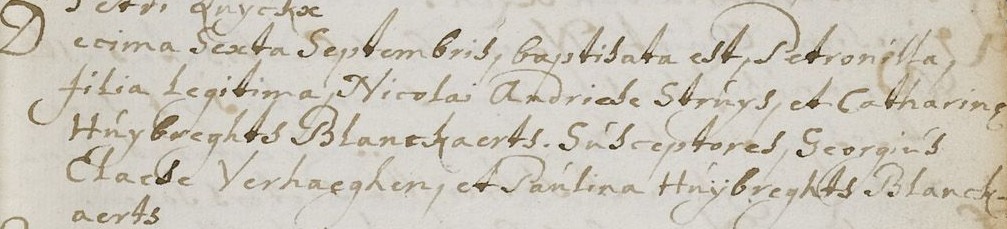 Petri Quyckx
Decima Sexta Septembris, baptisata est, Petronilla,
filia legitima, Nicolai Andriese Struys, et Catharinę
Húybreghts Blanckaerts. Súsceptores, Georgiús
Claese Verhaeghen, et Paúlina Húybreghts Blanck-
aerts